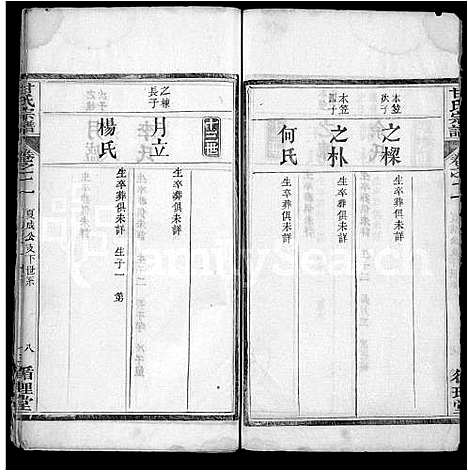 甘氏宗譜
卷之十一
木笠
次子
之樑
生卒葬俱未詳
木笠
四子
之朴
生卒葬俱未詳
何氏
生卒葬俱未詳
十三世
之棟
長子
月立
生卒葬俱未詳
楊氏
生卒葬俱未詳 生子一 第
甘氏宗譜
卷之十一
夏成公支下世系
八
循理堂
FamilySearch